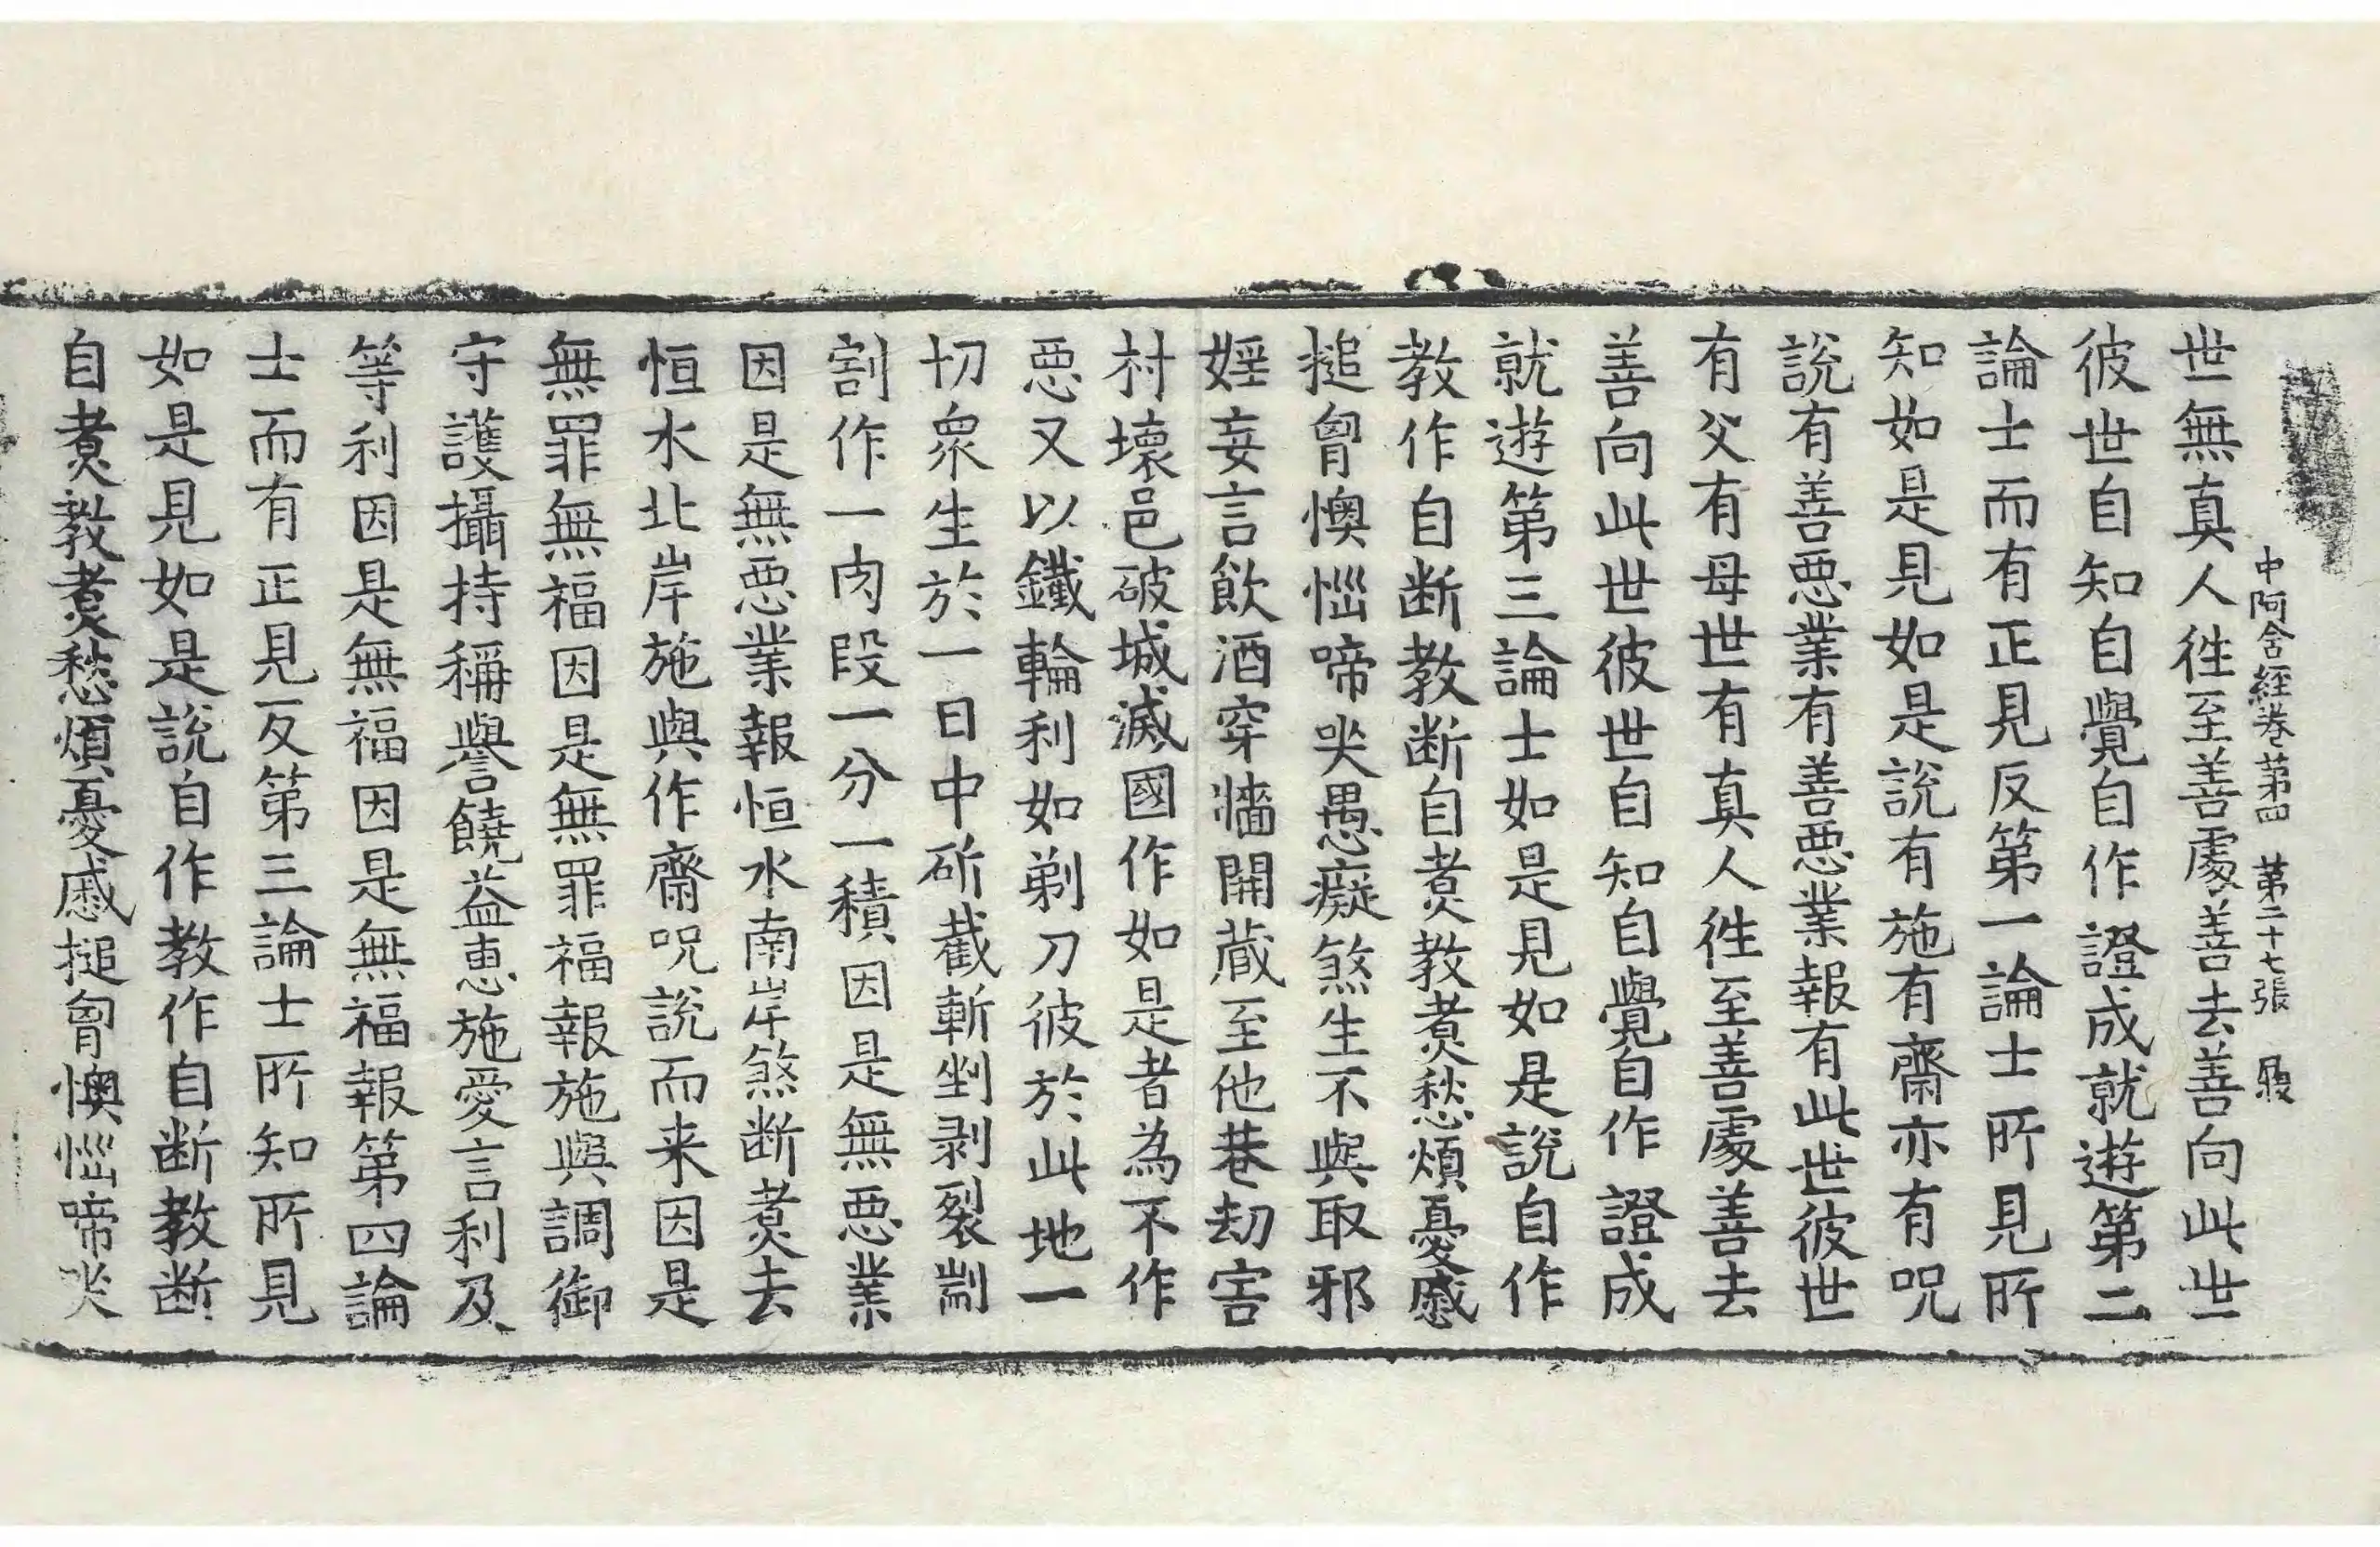 中阿含經卷第四　第二十七張　履
世無真人徃至善處善去善向此世
彼世自知自覺自作證成就遊第二
論士而有正見反第一論士所見所
知如是見如是說有施有齋亦有呪
說有善惡業有善惡業報有此世彼世
有父有母世有真人徃至善處善去
善向此世彼世自知自覺自作證成
就遊第三論士如是見如是說自作
教作自断教断自煑教煑愁煩憂慼
搥胷懊惱啼哭愚癡煞生不與取邪
婬妄言飲酒穿牆開藏至他巷劫害
村壞邑破城滅國作如是者為不作
惡又以鐵輪利如剃刀彼於此地一
切衆生於一日中斫截斬剉剥裂剬
割作一肉段一分一積因是無惡業
因是無惡業報恒水南岸煞断煑去
恒水北岸施與作齋呪說而来因是
無罪無福因是無罪福報施與調御
守護攝持稱譽饒益惠施愛言利及
等利因是無福因是無福報第四論
士而有正見反第三論士所知所見
如是見如是說自作教作自断教断
自煑教煑愁煩憂慼搥胷懊惱啼哭